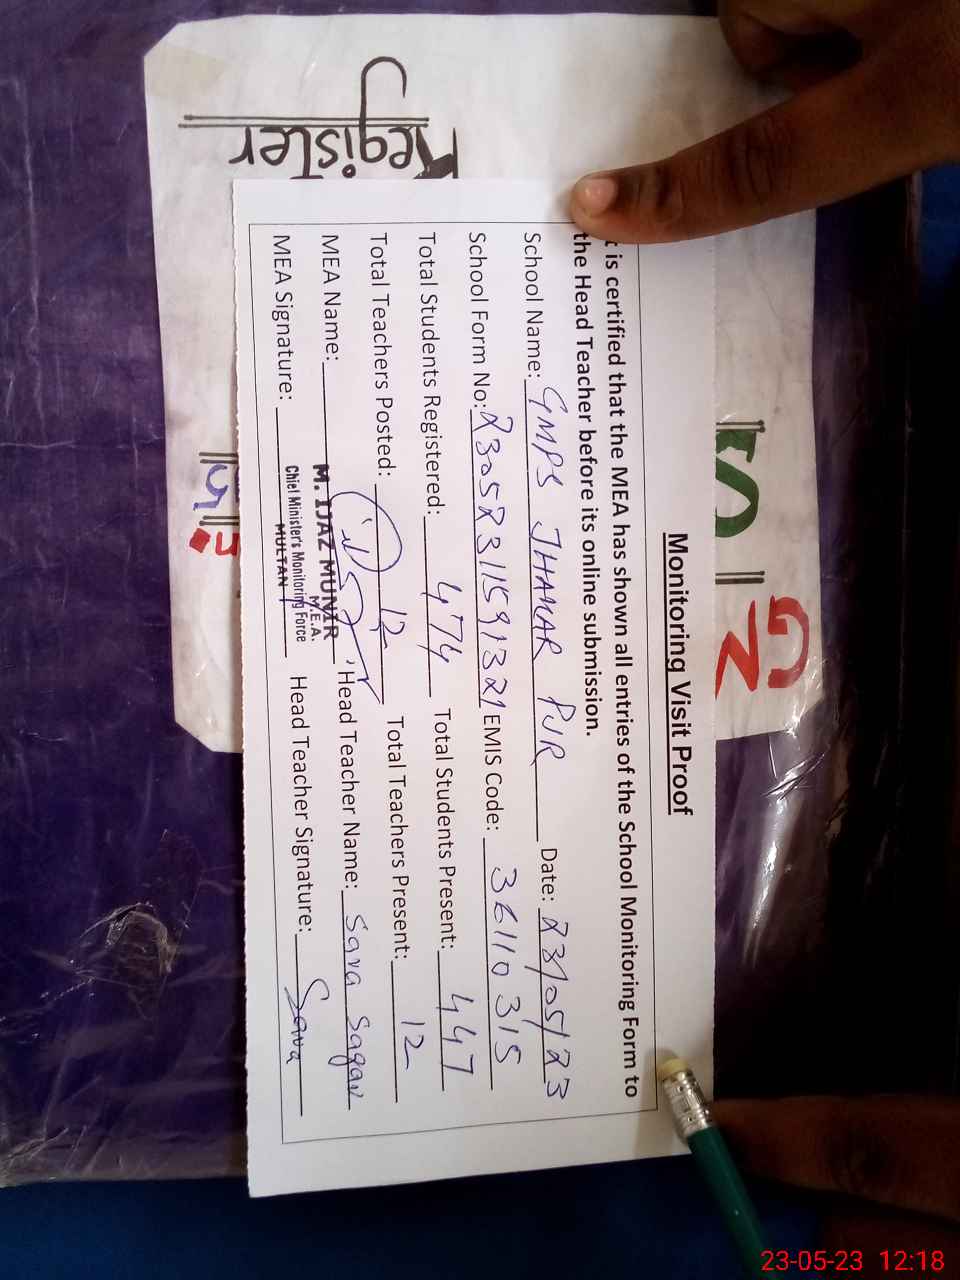 Register
Monitoring Visit Proof
is certified that the MEA has shown all entries of the School Monitoring Form to
the Head Teacher before its online submission.
School Name: GMPS JHAKAR PUR Date: 23/05/23
School Form No: 23052311591321 EMIS Code: 36110315
Total Students Registered: 474 Total Students Present: 447
Total Teachers Posted: 12 Total Teachers Present: 12
MEA Name: M. IJAZ MUNIR Head Teacher Name: Sara Sagar
M.E.A.
MEA Signature: Chief Minister's Monitoring Force Head Teacher Signature: Sara
MULTAN
23-05-23 12:18